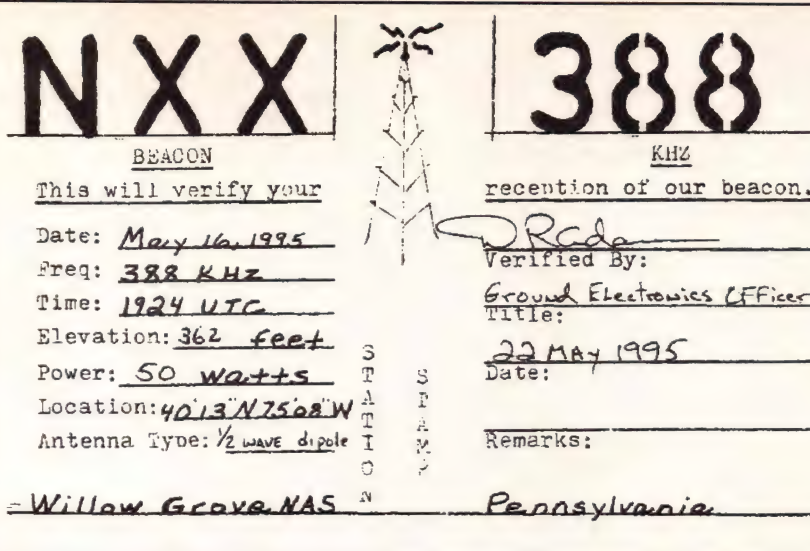 NXX
BEACON
This will verify your
Date: May 16, 1995
Freq: 388 KHz
Time: 1924 UTC
Elevation: 362 feet
Power: 50 watts
Location: 40°13"N 75°08"W
Antenna Type: 1/2 WAVE dipole
Willow Grove NAS
STATION
STAMP
388
KHZ
reception of our beacon.
Verified By:
Ground Electronics Officer
Title:
22 MAY 1995
Date:
Remarks:
Pennsylvania